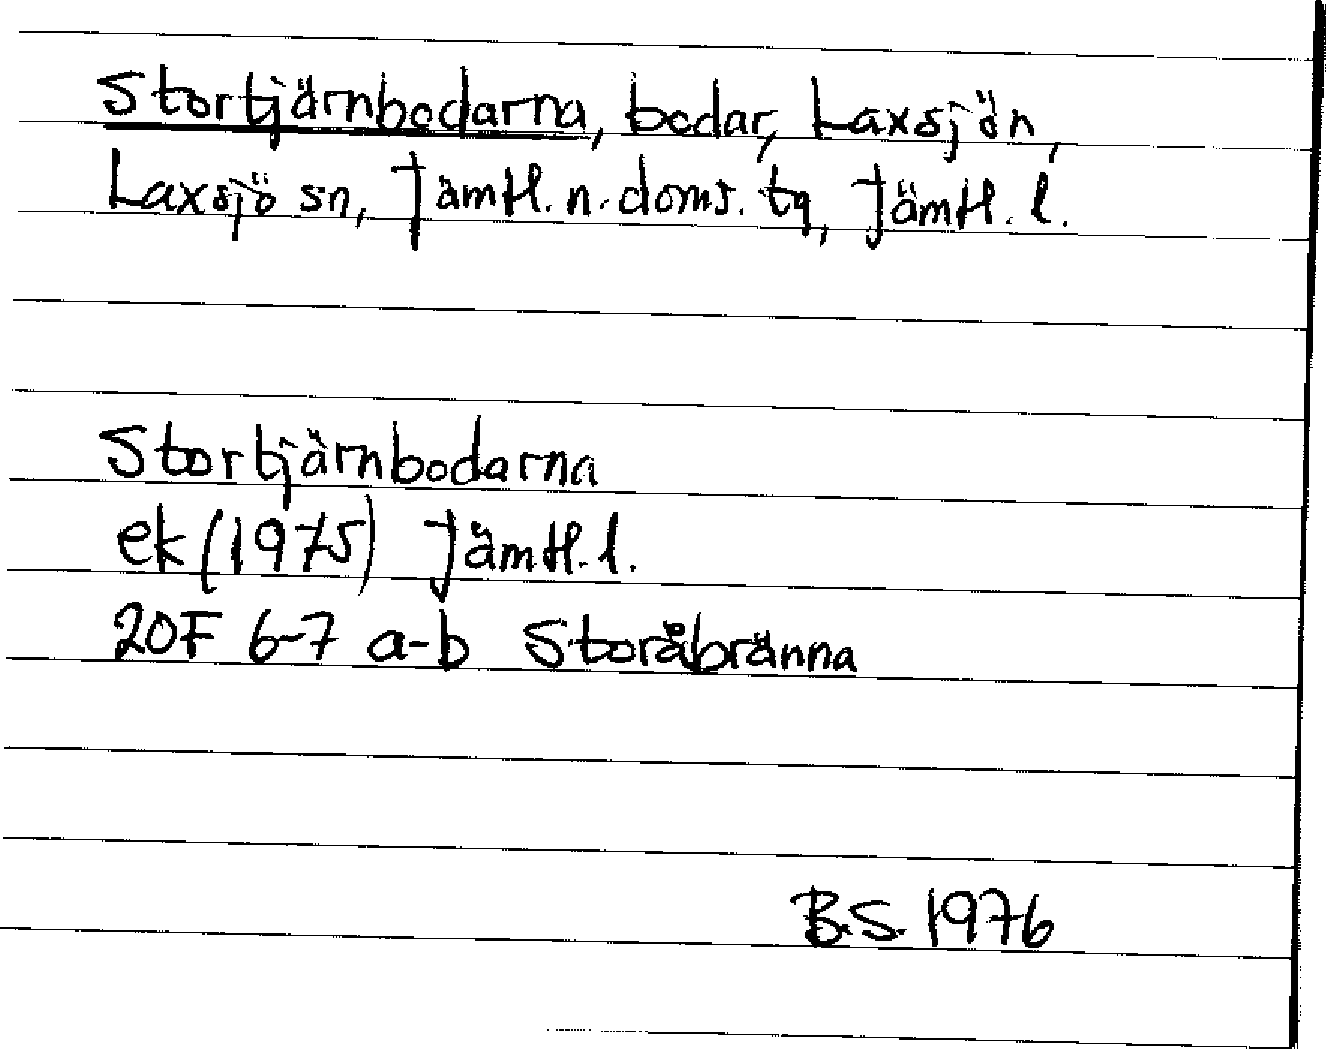 Stortjärnbodarna, bodar, Laxsjön,
Laxsjö sn, Jämtl. n. doms. tg, Jämtl. l.
Stortjärnbodarna
ek (1975) Jämtl. l.
20F 6-7 a-b Storåbränna
B.S. 1976